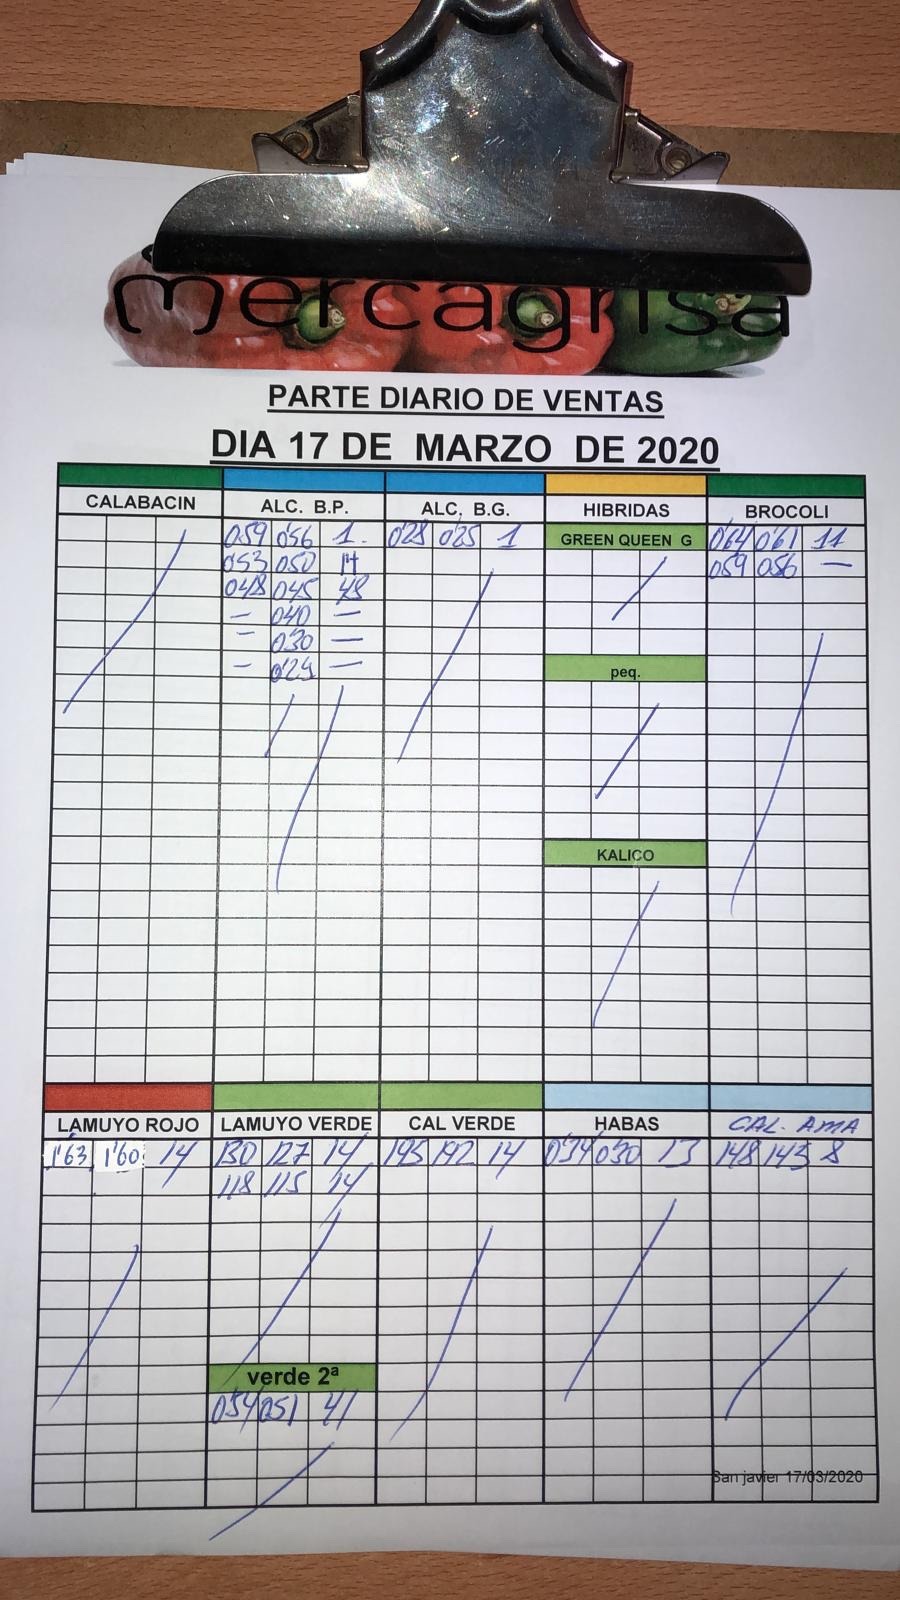 mercagrisa
PARTE DIARIO DE VENTAS
DIA 17 DE MARZO DE 2020
CALABACIN ALC. B.P. ALC, B.G. HIBRIDAS BROCOLI
059 056 1 028 025 1 GREEN QUEEN G 0'64 0'61 11
053 050 14 059 056 —
048 045 48
— 040 —
— 030 —
— 0'29 —
peq.
KALICO
LAMUYO ROJO LAMUYO VERDE CAL VERDE HABAS CAL. AMA
1'63 1'60 14 130 127 14 195 192 14 034 030 13 148 145 8
118 115 14
verde 2ª
054 051 41
San javier 17/03/2020